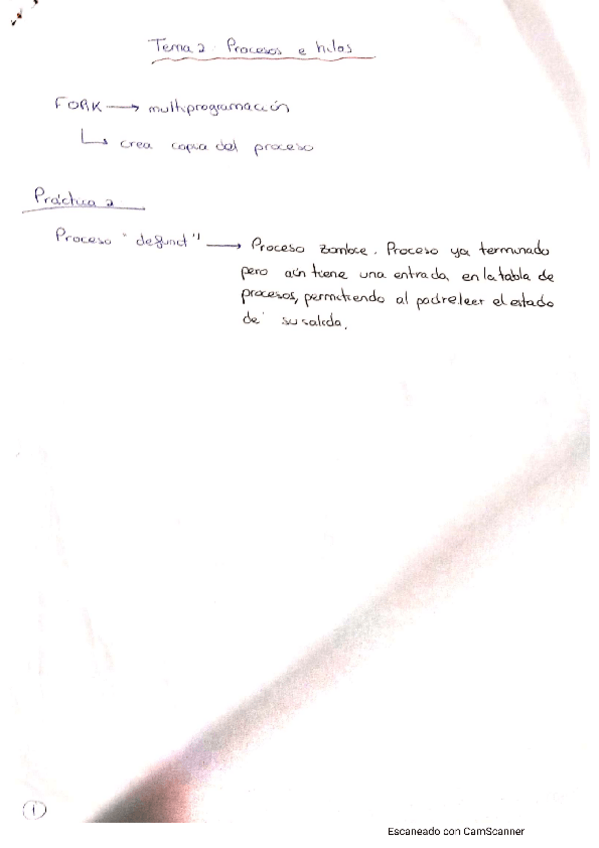 Tema 2 Procesos e hilos
FORK → multiprogramación
↳ crea copia del proceso
Práctica 2
Proceso "defunct" → Proceso zombie. Proceso ya terminado
pero aún tiene una entrada en la tabla de
procesos, permitiendo al padre leer el estado
de su salida.
1
Escaneado con CamScanner